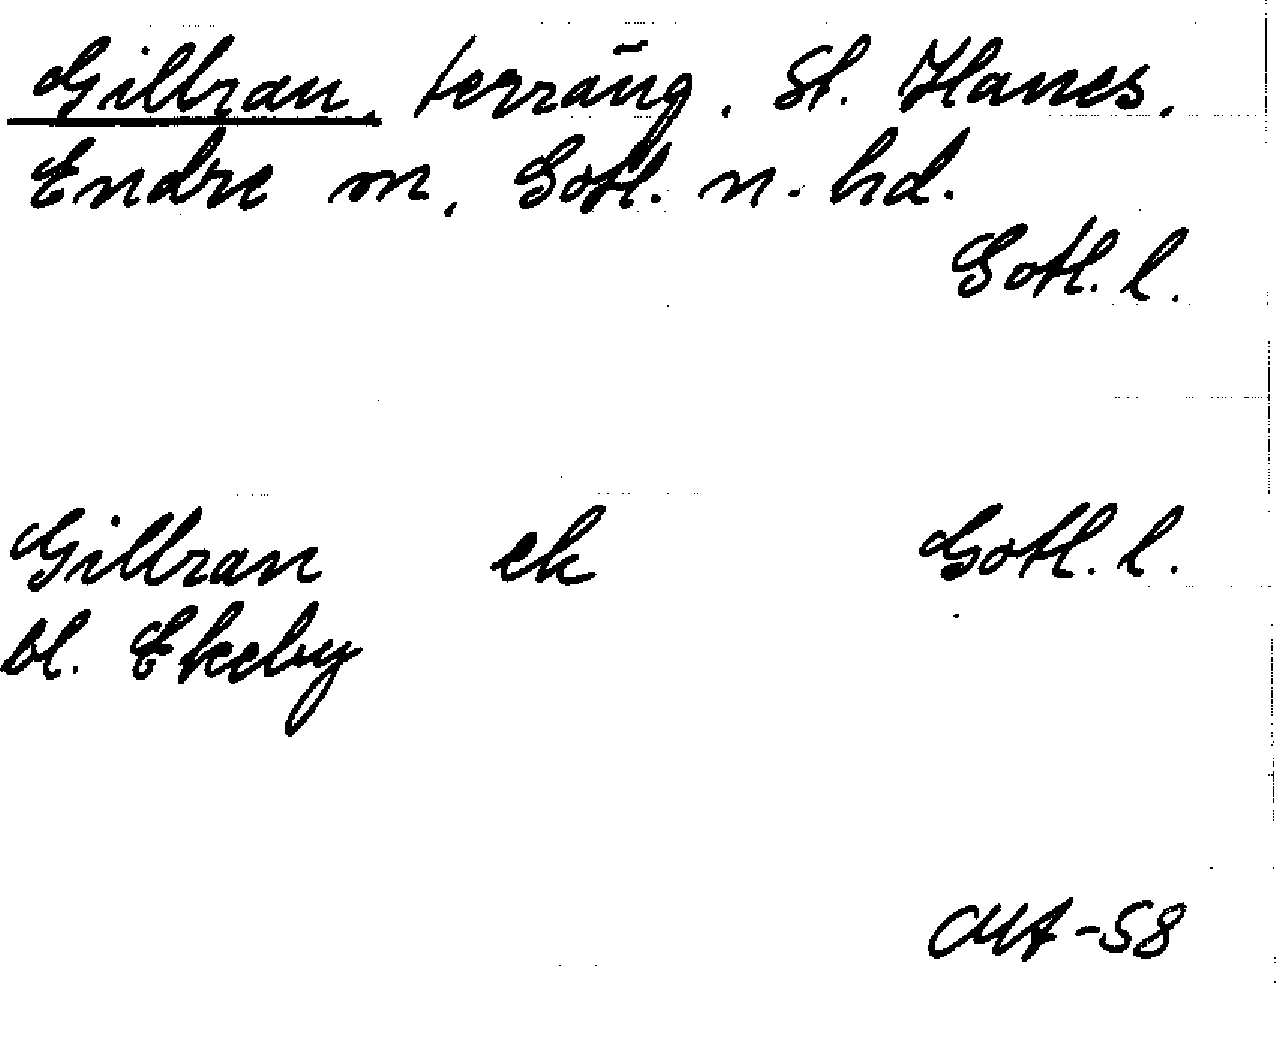 Gillran, terräng. St. Hanes.
Endre m, Gotl. n. hd.
Gotl. l.
Gillran ek Gotl. l.
bl. Ekeby
OMA-58